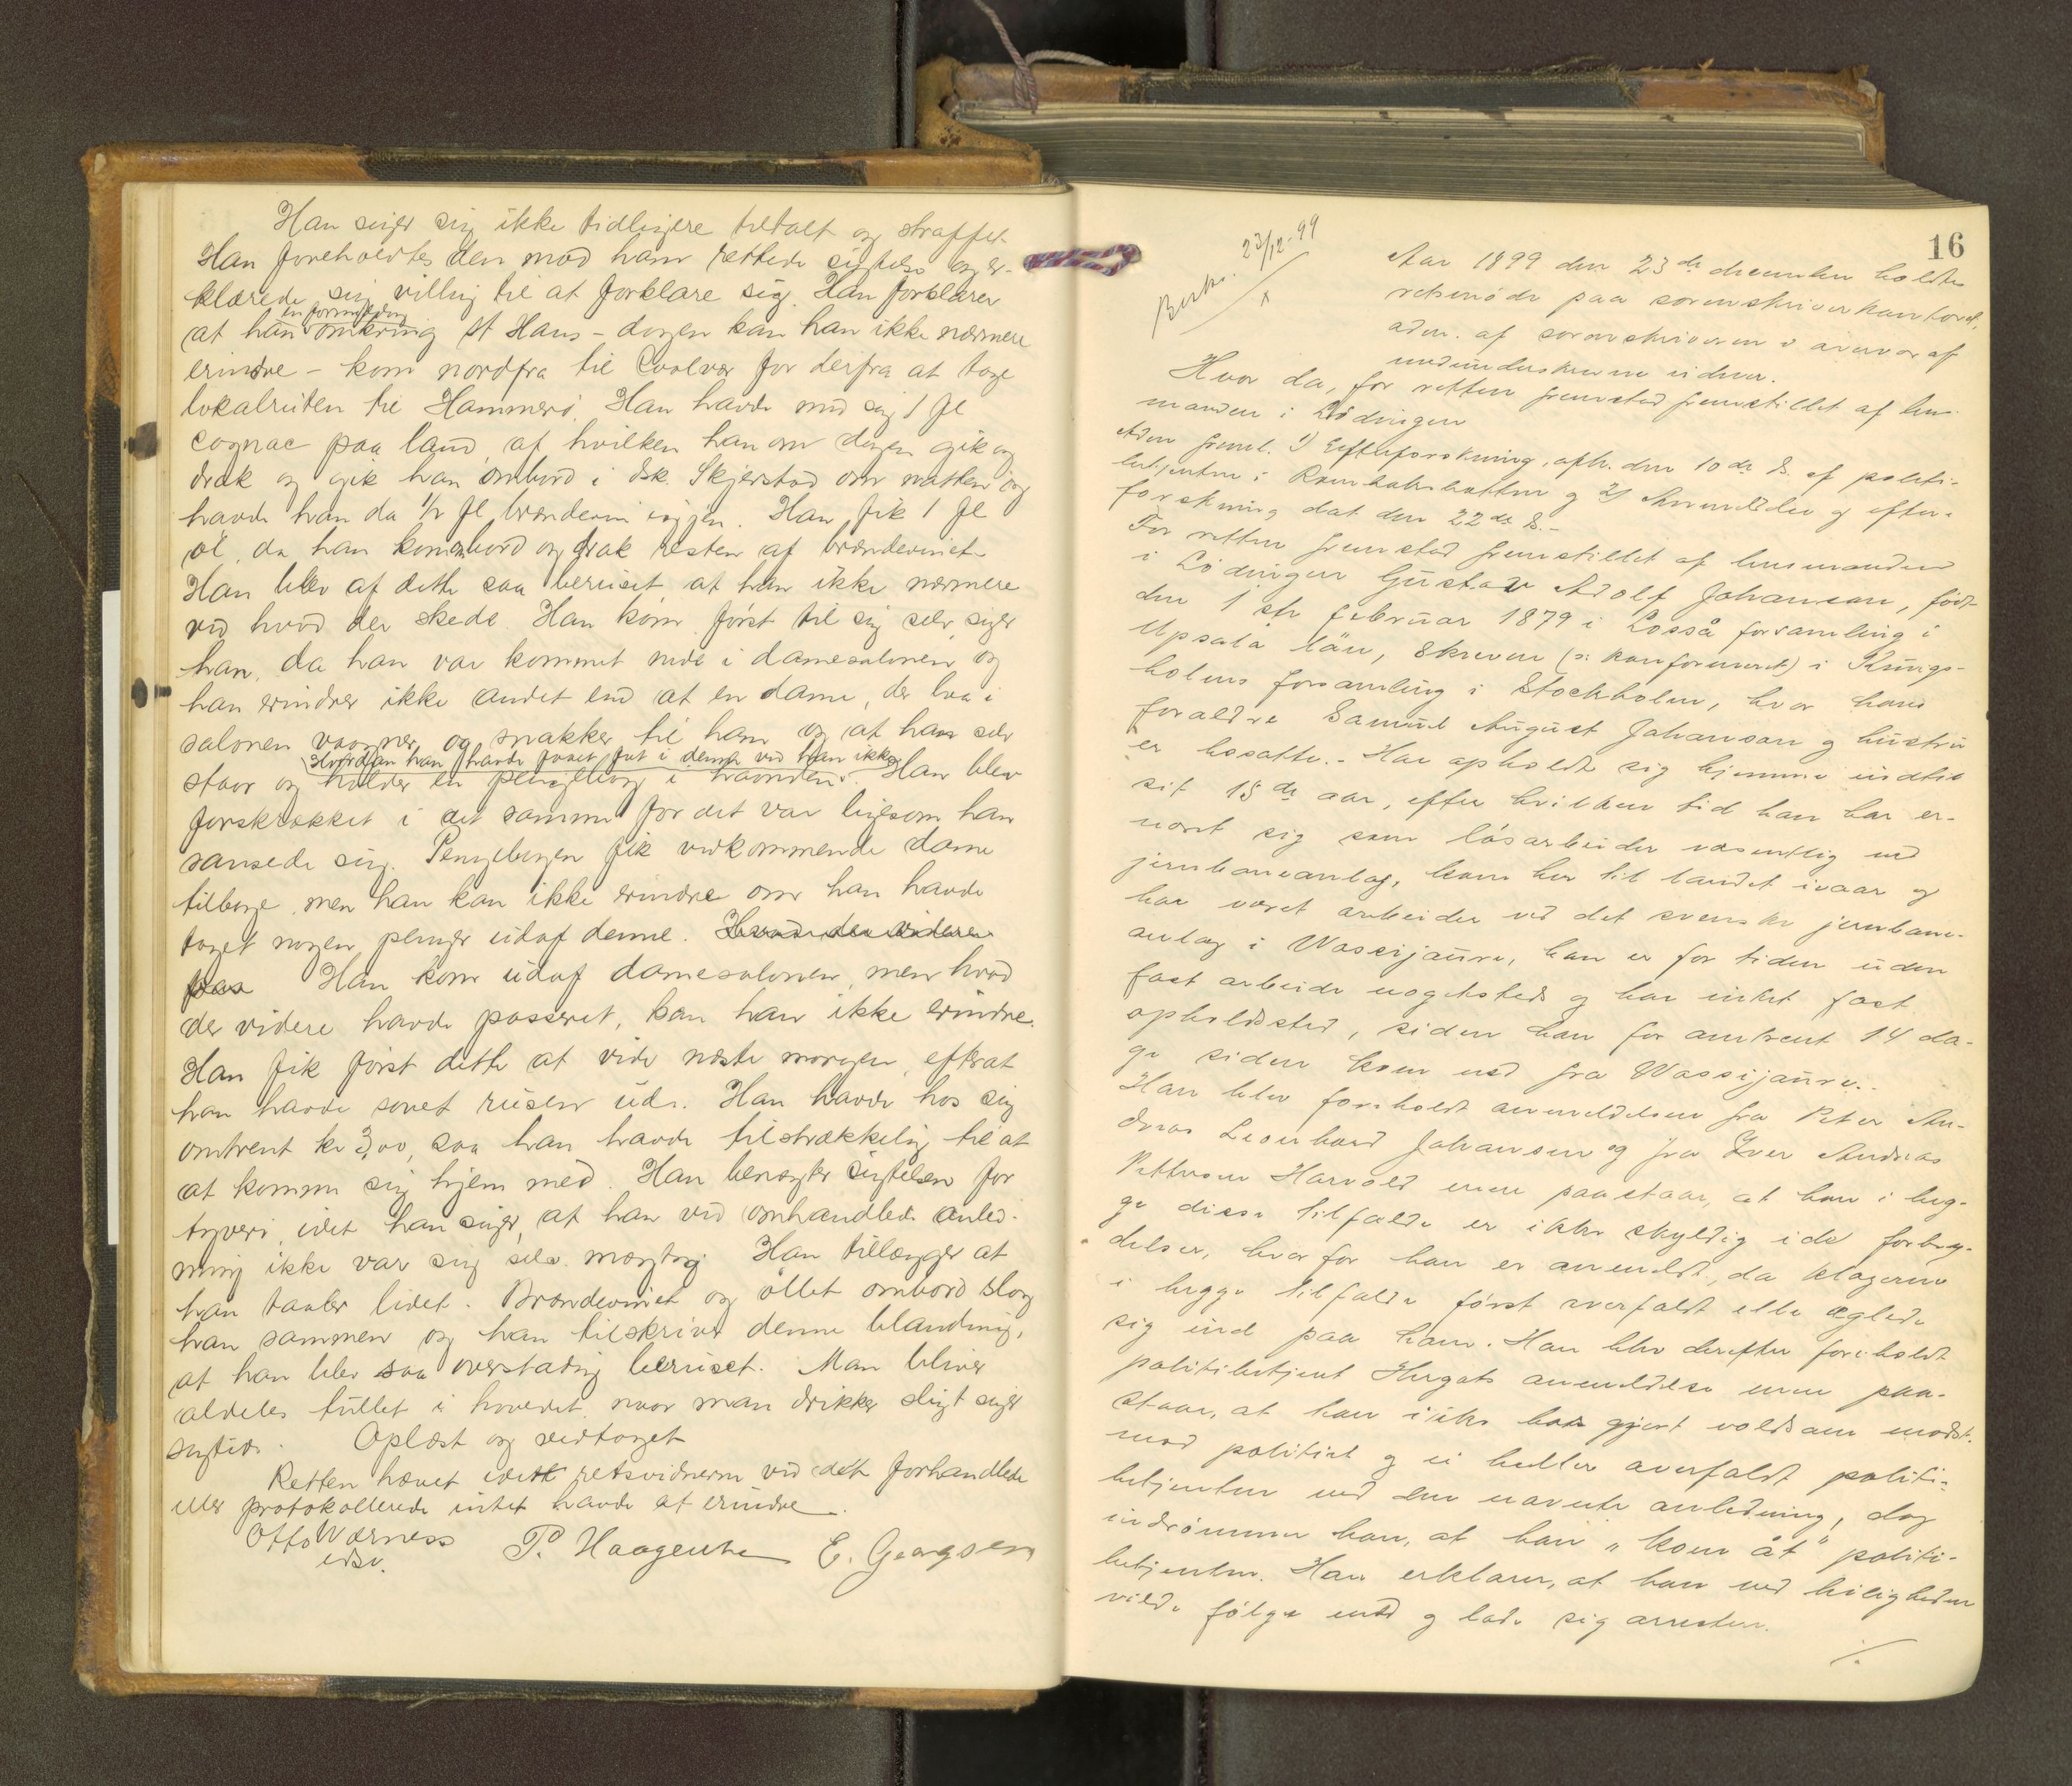 Han siger sig ikke tidligere tiltalt og straffet.
Han foreholdtes den mod ham rettede sigtelse og er-
klærede sig villig til at forklare sig. Han forklarer
en formiddag
at han omkring St Hans - dagen kan han ikke nærmere
erindre - kom nordfra til Evolvær for derfra at tage
lokalruten til Hammerø. Han havde med sig 1 fl
cognac paa land, af hvilken han om dagen gik og
drak og gik han ombord i dsk. Skjerstad om natten og
havde han da 1/2 fl brændevin igjen. Han fik 1 fl
øl, da han kom ombord og drak resten af brændevinet.
Han blev af dette saa beruset, at han ikke nærmere
ved hvad der skede. Han kom først til sig selv, siger
han, da han var kommet ned i damesalonen og
han erindrer ikke andet end at en dame, der laa i
salonen vaagner og snakker til ham og at han selv
Hvordan han havde faaet fat i denne ved han ikke
staar og holder en pengebog i haanden. Han blev
forskrækket i det samme for det var ligesom han
sansede sig. Pengebogen fik vedkommende dame
tilbage, men han kan ikke erindre om han havde
taget nogen penger udaf denne. Hvad der videre
pas Han kom udaf damesalonen, men hvad
der videre havde passeret, kan han ikke erindre.
Han fik først dette at vide næste morgen, efterat
han havde sovet rusen ud. Han havde hos sig
omtrent kr 3,00, saa han havde tilstrækkelig til at
at komme sig hjem med. Han benægter sigtelsen for
tyveri, idet han siger, at han ved omhandlede anled-
ning ikke var sig selv mægtig. Han tillægger at
han taaler lidet. Brændevinet og øllet ombord slog
han sammen og han tilskriver denne blanding,
at han blev saa overstadig beruset. Man bliver
aldeles tullet i hovedet, naar man drikker sligt siger
sigtede. Oplæst og vedtaget
Retten hævet idet retsvidnerne ved det forhandlede
eller protokollerede intet havde at erindre.
Otto Værness P. Haagensen E. Georgsen
edsv.
16
Besk. 23/12-99
x
Aar 1899 den 23de december holdtes
retsmøde paa sorenskriverkontoret,
adm. af sorenskriveren i overvær af
medunderskrevne vidner.
Hvor da, for retten fremsted fremstillet af lens-
manden i Lødingen
Adm freml. 1) Efterforskning, afh. den 10de ds. af politi-
betjenten i Rombaksbotten og 2) Anmeldelse og efter-
forskning dat den 22de ds.-
For retten fremsted fremstillet af lensmanden
i Lødingen Gustav Adolf Johanson, født
den 1ste februar 1879 i Losså forsamling i
Upsala län, skreven (o: konfirmeret) i Kungs-
holms forsamling i Stockholm, hvor hans
forældre Samuel August Johanson og hustru
er bosatte.- Har opholdt sig hjemme indtil
sit 15de aar, efter hvilken tid han har er-
næret sig som løsarbeider væsentlig ved
jernbaneanlæg, kom her til landet ivaar og
har været arbeider ved det svenske jernbane-
anlæg i Wassijaure, han er for tiden uden
fast arbeide nogetsteds og har intet fast
opholdssted, siden han for omtrent 14 da-
ge siden kom ned fra Wassijaure.-
Han blev foreholdt anmeldelsen fra Peter An-
dreas Leonhard Johansen og fra Iver Andreas
Pettersen Harvold men paastaar, at han i beg-
ge disse tilfælde er ikke skyldig i de forbry-
delser, hvorfor han er anmeldt, da klagerne
i begge tilfælde først overfaldt eller æglede
sig ind paa ham. Han blev derefter foreholdt
politibetjent anmeldelse men paa-
staar, at han ikke har gjort voldsom modst.
mod politiet og ei heller overfaldt politi-
betjenten ved den nævnte anledning, dog
indrømmer han, at han "kom åt" politi-
betjenten. Han erklærer, at han ved leiligheden
vilde følge med og lade sig arrestere.
./.